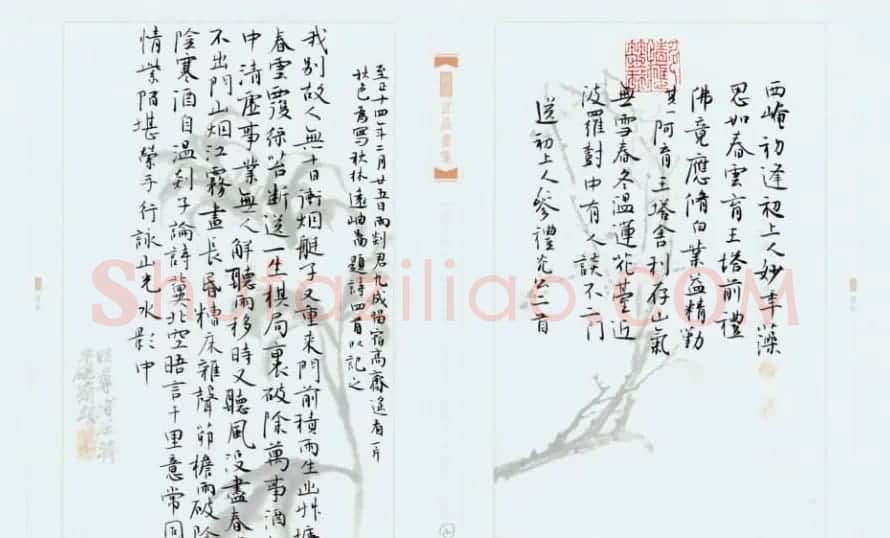 西崦初逢初上人妙年藻
思如春雲育王塔前禮
佛竟應脩白業益精勤
其一阿育王塔舍利存山氣
無雪春冬溫蓮花臺近
波羅對中有人談不二門
送初上人參禮 二首
至正十四年二月廿五日雨 君九成 宿高齋遙看一片
秋色為寫秋林遠岫 題詩四首以記之
我別故人無十日衝烟艇子又重來門前積雨生幽艸
春雲覆綠苔斷送一生棋局裏破除萬事酒
中清虛事業無人解聽雨移時又聽風沒盡春
不出門山烟江霧晝長昏糟床雜聲節檐雨破除
陰寒酒自溫剡子論詩冀北空晤言千里意常同
情 陌堪縈手行詠山光水影中
Shufaziliao.COM